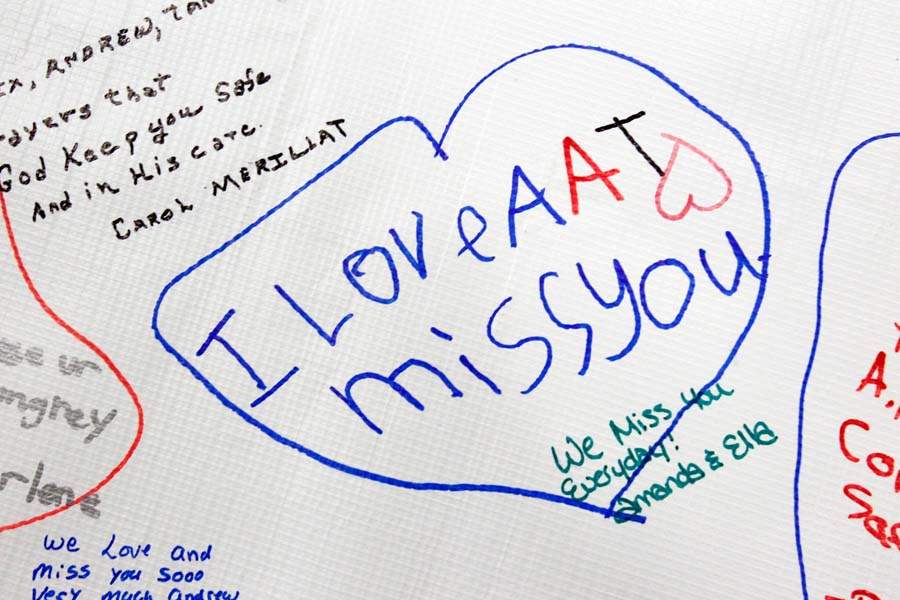 ANDREW, IAN
that
God Keep you Safe
And in His care.
CAROL MERILLAT
I LOVe AAT
miss you
We Miss You
Everyday!
Amanda & Ella
ur
We Love and
Miss you Sooo
Very much Andrew
A.